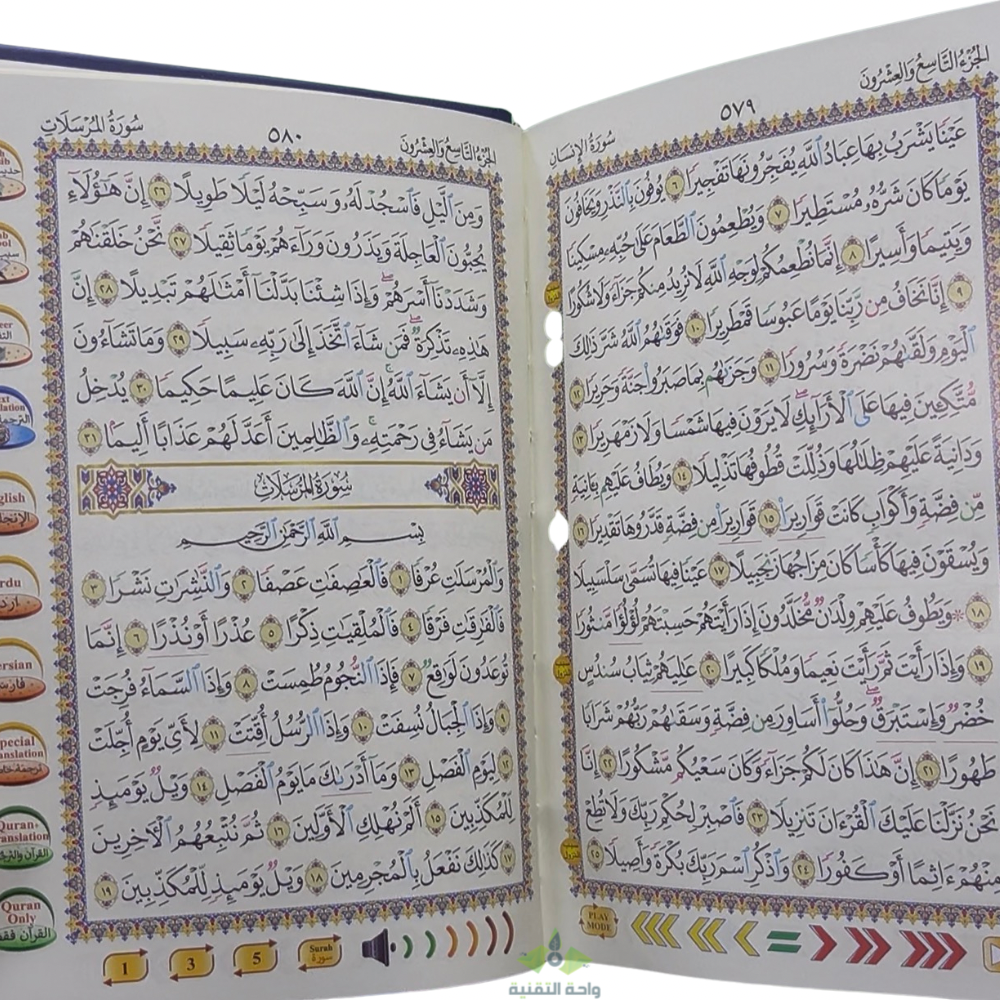 الجزء التاسع والعشرون
٥٧٩
سورة الإنسان
عَيْنًا يَشْرَبُ بِهَا عِبَادُ ٱللَّهِ يُفَجِّرُونَهَا تَفْجِيرًا ٦ يُوفُونَ بِٱلنَّذْرِ وَيَخَافُونَ
يَوْمًا كَانَ شَرُّهُۥ مُسْتَطِيرًا ٧ وَيُطْعِمُونَ ٱلطَّعَامَ عَلَىٰ حُبِّهِۦ مِسْكِينًا
وَيَتِيمًا وَأَسِيرًا ٨ إِنَّمَا نُطْعِمُكُمْ لِوَجْهِ ٱللَّهِ لَا نُرِيدُ مِنكُمْ جَزَآءً وَلَا شُكُورًا
٩ إِنَّا نَخَافُ مِن رَّبِّنَا يَوْمًا عَبُوسًا قَمْطَرِيرًا ١٠ فَوَقَىٰهُمُ ٱللَّهُ شَرَّ ذَٰلِكَ
ٱلْيَوْمِ وَلَقَّىٰهُمْ نَضْرَةً وَسُرُورًا ١١ وَجَزَىٰهُم بِمَا صَبَرُوا۟ جَنَّةً وَحَرِيرًا ١٢
مُّتَّكِـِٔينَ فِيهَا عَلَى ٱلْأَرَآئِكِ ۖ لَا يَرَوْنَ فِيهَا شَمْسًا وَلَا زَمْهَرِيرًا ١٣
وَدَانِيَةً عَلَيْهِمْ ظِلَٰلُهَا وَذُلِّلَتْ قُطُوفُهَا تَذْلِيلًا ١٤ وَيُطَافُ عَلَيْهِم بِـَٔانِيَةٍ
مِّن فِضَّةٍ وَأَكْوَابٍ كَانَتْ قَوَارِيرَا۠ ١٥ قَوَارِيرَا۟ مِن فِضَّةٍ قَدَّرُوهَا تَقْدِيرًا ١٦
وَيُسْقَوْنَ فِيهَا كَأْسًا كَانَ مِزَاجُهَا زَنجَبِيلًا ١٧ عَيْنًا فِيهَا تُسَمَّىٰ سَلْسَبِيلًا
١٨ * وَيَطُوفُ عَلَيْهِمْ وِلْدَٰنٌ مُّخَلَّدُونَ إِذَا رَأَيْتَهُمْ حَسِبْتَهُمْ لُؤْلُؤًا مَّنثُورًا
١٩ وَإِذَا رَأَيْتَ ثَمَّ رَأَيْتَ نَعِيمًا وَمُلْكًا كَبِيرًا ٢٠ عَٰلِيَهُمْ ثِيَابُ سُندُسٍ
خُضْرٌ وَإِسْتَبْرَقٌ ۖ وَحُلُّوٓا۟ أَسَاوِرَ مِن فِضَّةٍ وَسَقَىٰهُمْ رَبُّهُمْ شَرَابًا
طَهُورًا ٢١ إِنَّ هَٰذَا كَانَ لَكُمْ جَزَآءً وَكَانَ سَعْيُكُم مَّشْكُورًا ٢٢ إِنَّا
نَحْنُ نَزَّلْنَا عَلَيْكَ ٱلْقُرْءَانَ تَنزِيلًا ٢٣ فَٱصْبِرْ لِحُكْمِ رَبِّكَ وَلَا تُطِعْ
مِنْهُمْ ءَاثِمًا أَوْ كَفُورًا ٢٤ وَٱذْكُرِ ٱسْمَ رَبِّكَ بُكْرَةً وَأَصِيلًا ٢٥
PLAY
MODE
الجزء التاسع والعشرون
٥٨٠
سورة المرسلات
وَمِنَ ٱلَّيْلِ فَٱسْجُدْ لَهُۥ وَسَبِّحْهُ لَيْلًا طَوِيلًا ٢٦ إِنَّ هَٰٓؤُلَآءِ
يُحِبُّونَ ٱلْعَاجِلَةَ وَيَذَرُونَ وَرَآءَهُمْ يَوْمًا ثَقِيلًا ٢٧ نَّحْنُ خَلَقْنَٰهُمْ
وَشَدَدْنَآ أَسْرَهُمْ ۖ وَإِذَا شِئْنَا بَدَّلْنَآ أَمْثَٰلَهُمْ تَبْدِيلًا ٢٨ إِنَّ
هَٰذِهِۦ تَذْكِرَةٌ ۖ فَمَن شَآءَ ٱتَّخَذَ إِلَىٰ رَبِّهِۦ سَبِيلًا ٢٩ وَمَا تَشَآءُونَ
إِلَّآ أَن يَشَآءَ ٱللَّهُ ۚ إِنَّ ٱللَّهَ كَانَ عَلِيمًا حَكِيمًا ٣٠ يُدْخِلُ
مَن يَشَآءُ فِى رَحْمَتِهِۦ ۚ وَٱلظَّٰلِمِينَ أَعَدَّ لَهُمْ عَذَابًا أَلِيمًا ٣١
سورة المرسلات
بِسْمِ ٱللَّهِ ٱلرَّحْمَٰنِ ٱلرَّحِيمِ
وَٱلْمُرْسَلَٰتِ عُرْفًا ١ فَٱلْعَٰصِفَٰتِ عَصْفًا ٢ وَٱلنَّٰشِرَٰتِ نَشْرًا ٣
فَٱلْفَٰرِقَٰتِ فَرْقًا ٤ فَٱلْمُلْقِيَٰتِ ذِكْرًا ٥ عُذْرًا أَوْ نُذْرًا ٦ إِنَّمَا
تُوعَدُونَ لَوَٰقِعٌ ٧ فَإِذَا ٱلنُّجُومُ طُمِسَتْ ٨ وَإِذَا ٱلسَّمَآءُ فُرِجَتْ
٩ وَإِذَا ٱلْجِبَالُ نُسِفَتْ ١٠ وَإِذَا ٱلرُّسُلُ أُقِّتَتْ ١١ لِأَىِّ يَوْمٍ أُجِّلَتْ
١٢ لِيَوْمِ ٱلْفَصْلِ ١٣ وَمَآ أَدْرَىٰكَ مَا يَوْمُ ٱلْفَصْلِ ١٤ وَيْلٌ يَوْمَئِذٍ
لِّلْمُكَذِّبِينَ ١٥ أَلَمْ نُهْلِكِ ٱلْأَوَّلِينَ ١٦ ثُمَّ نُتْبِعُهُمُ ٱلْـَٔاخِرِينَ
١٧ كَذَٰلِكَ نَفْعَلُ بِٱلْمُجْرِمِينَ ١٨ وَيْلٌ يَوْمَئِذٍ لِّلْمُكَذِّبِينَ ١٩
1 3 5 Surah سورة
Quran+
القرآن
Quran
Only
القرآن فقط
واحة التقنية